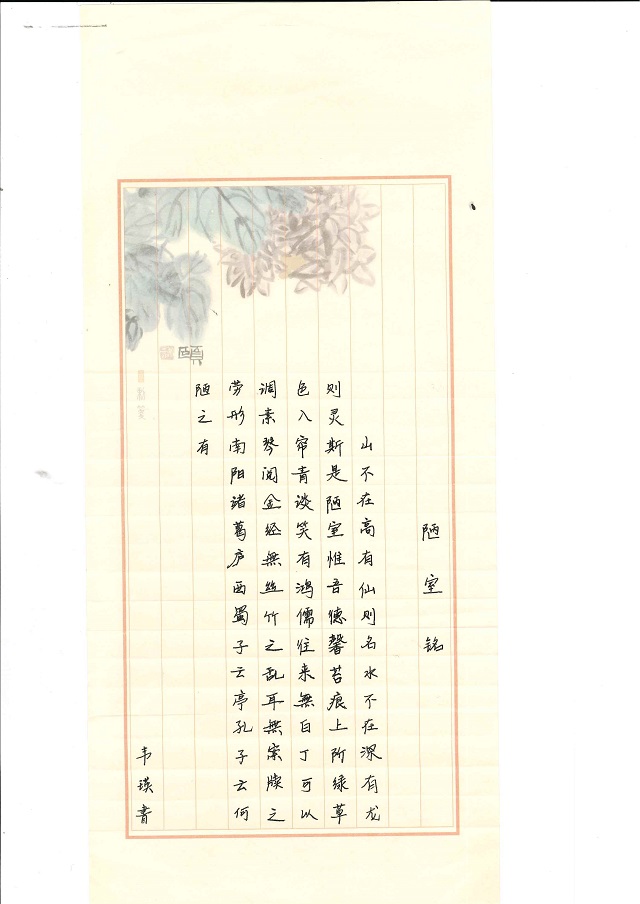 陋室铭
山不在高有仙则名水不在深有龙
则灵斯是陋室惟吾德馨苔痕上所绿草
色入帘青谈笑有鸿儒往来無白丁可以
调素琴阅金经無丝竹之乱耳無案牍之
劳形南阳诸葛庐西蜀子云亭孔子云何
陋之有
韦瑛書